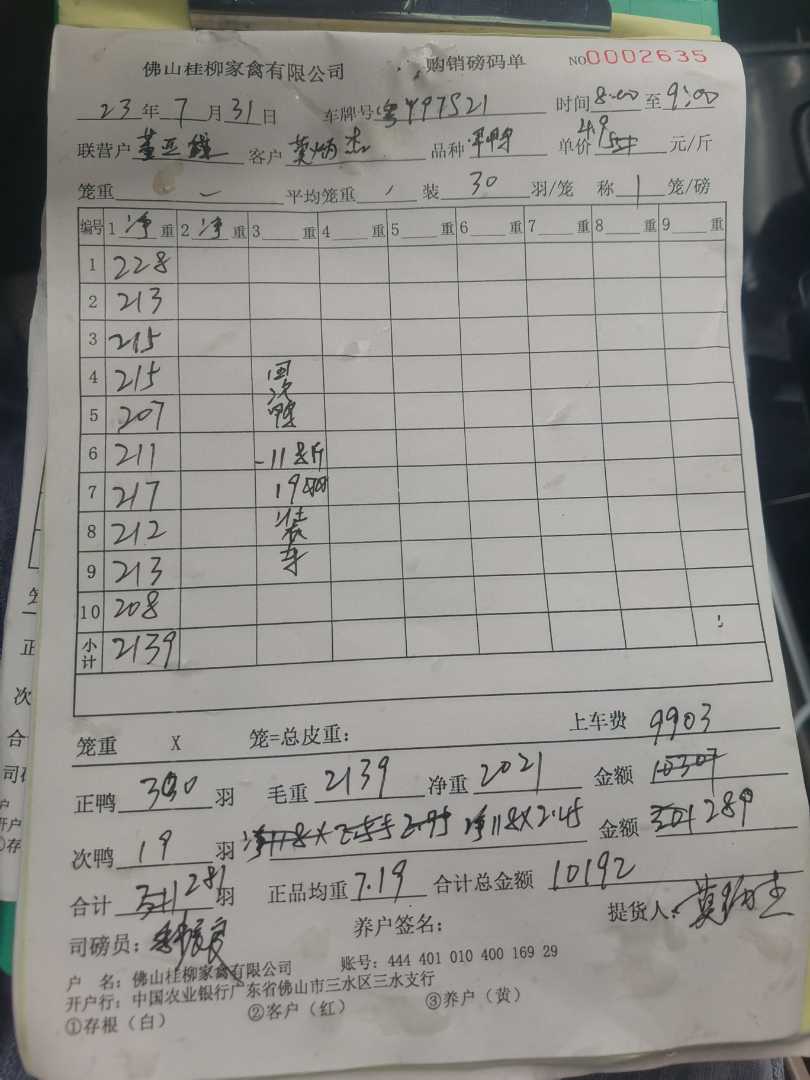 佛山桂柳家禽有限公司 购销磅码单 NO0002635
23年7月31日 车牌号粤Y97S21 时间8:00至9:00
联营户 客户莫炳杰 品种 单价4.9 元/斤
笼重 一 平均笼重 / 装 30 羽/笼 称 1 笼/磅
编号 1 净 重 2 净 重 3 重 4 重 5 重 6 重 7 重 8 重 9 重
1 228
2 213
3 215
4 215 回次
5 207 鸭
6 211 -118斤
7 217 19
8 212 装
9 213 车
10 208
小计 2139
笼重 X 笼=总皮重: 上车费 9903
正鸭 300 羽 毛重 2139 净重 2021 金额 10307
次鸭 19 羽 净118×2.55 2.95 净118×2.45 金额 301 289
合计 281 羽 正品均重 7.19 合计总金额 10192
司磅员: 养户签名: 提货人: 莫炳杰
户 名: 佛山桂柳家禽有限公司 账号: 444 401 010 400 169 29
开户行: 中国农业银行广东省佛山市三水区三水支行
①存根(白) ②客户(红) ③养户(黄)